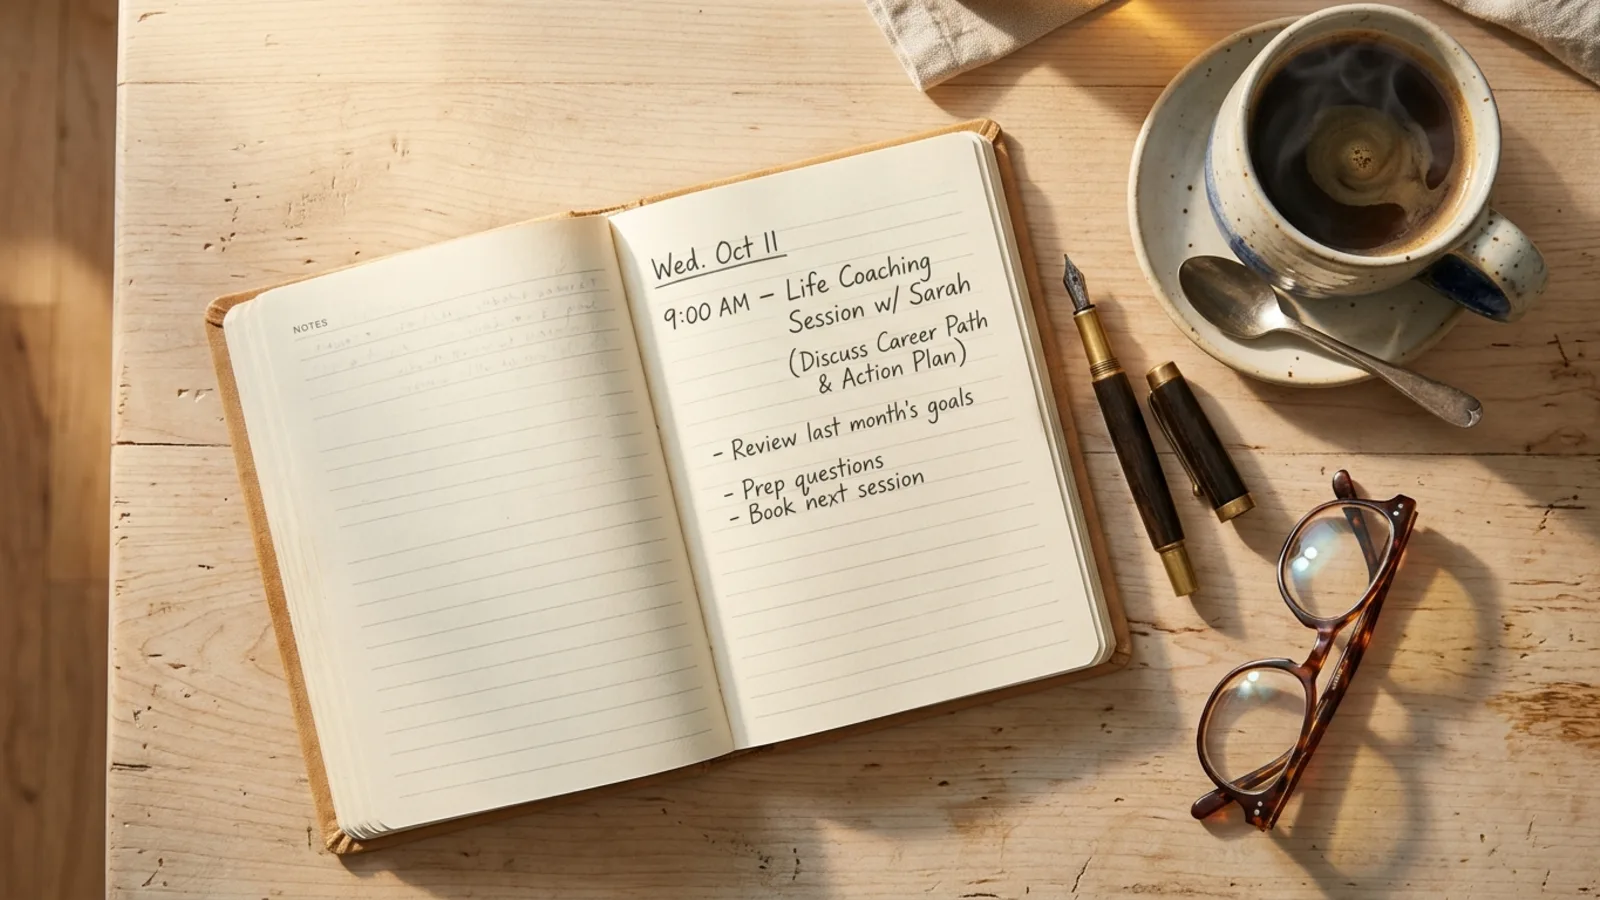 NOTES
Wed. Oct 11
9:00 AM – Life Coaching
Session w/ Sarah
(Discuss Career Path
& Action Plan)
- Review last month's goals
- Prep questions
- Book next session